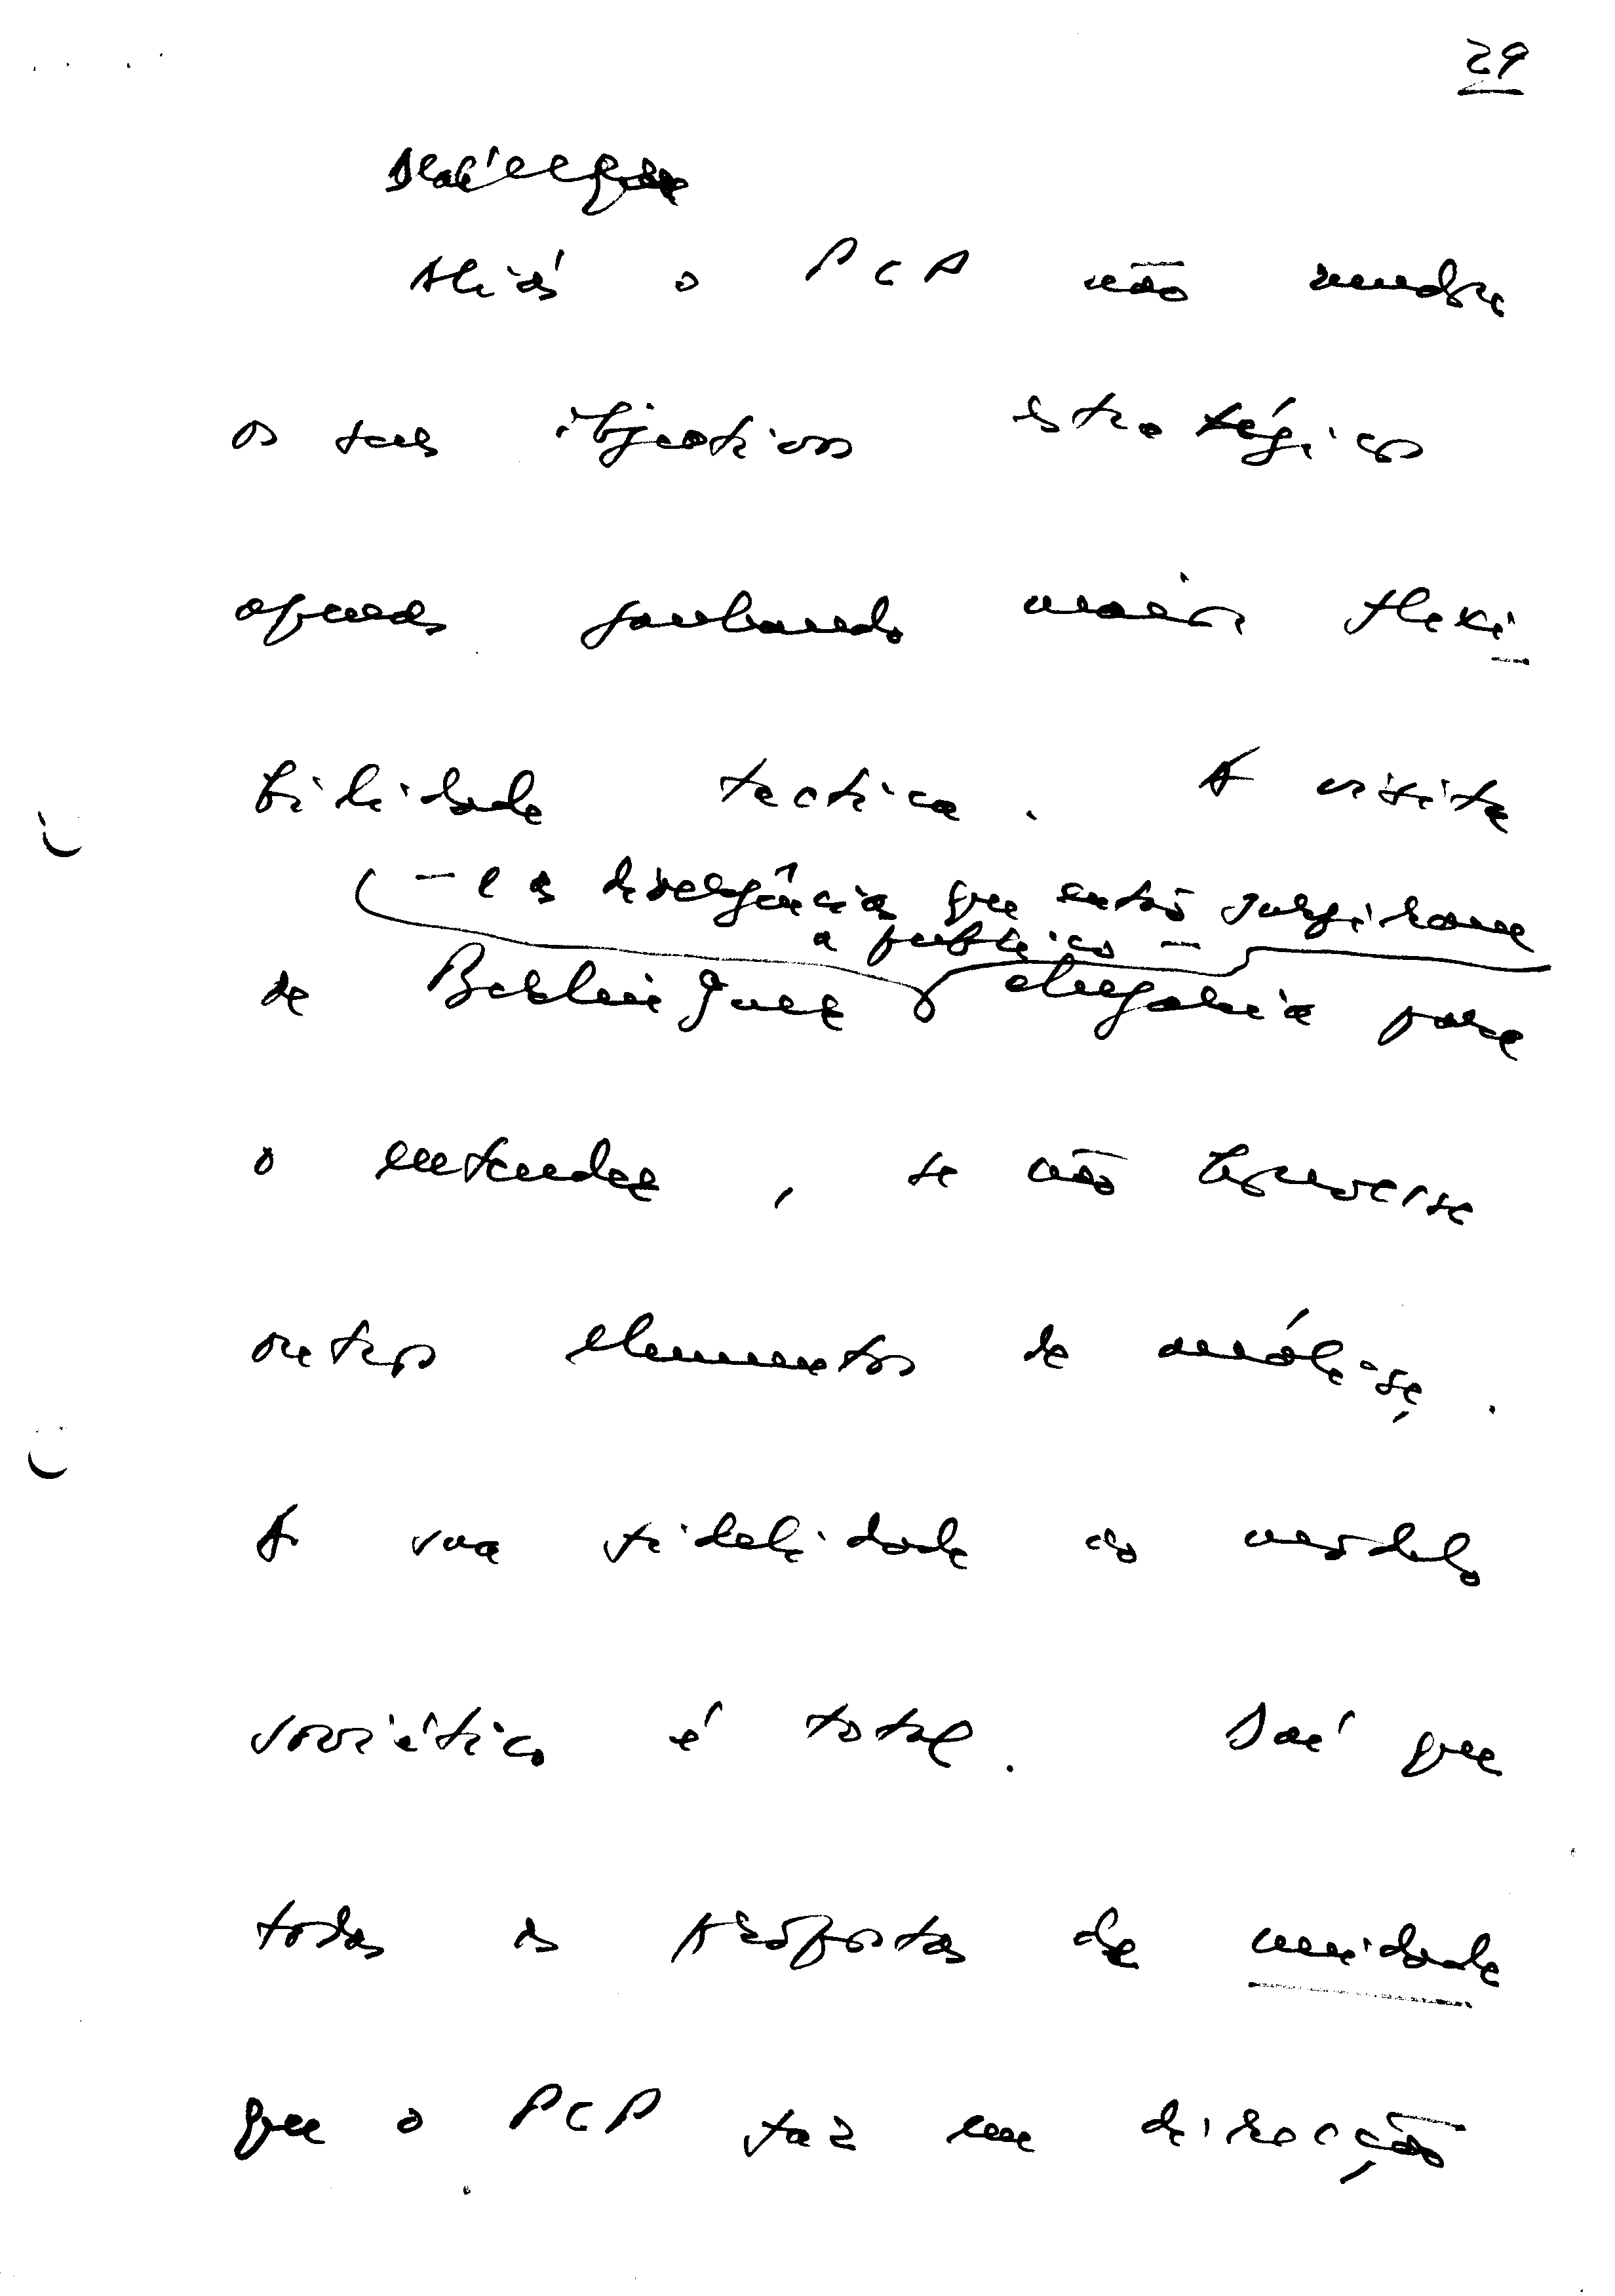 29
Aliás o PCP não mudou
os seus objectivos estratégicos
apenas ganhando maior flexi
bilidade tactica. A visita
— e as divergências que então surgiram
a publico —
de Berlinguer chegaria para
o entender, se não houvesse
outros elementos de análise.
A sua fidelidade ao modelo
soviético é total. Daí que
todas as propostas de unidade
que o PCP faz em direcção